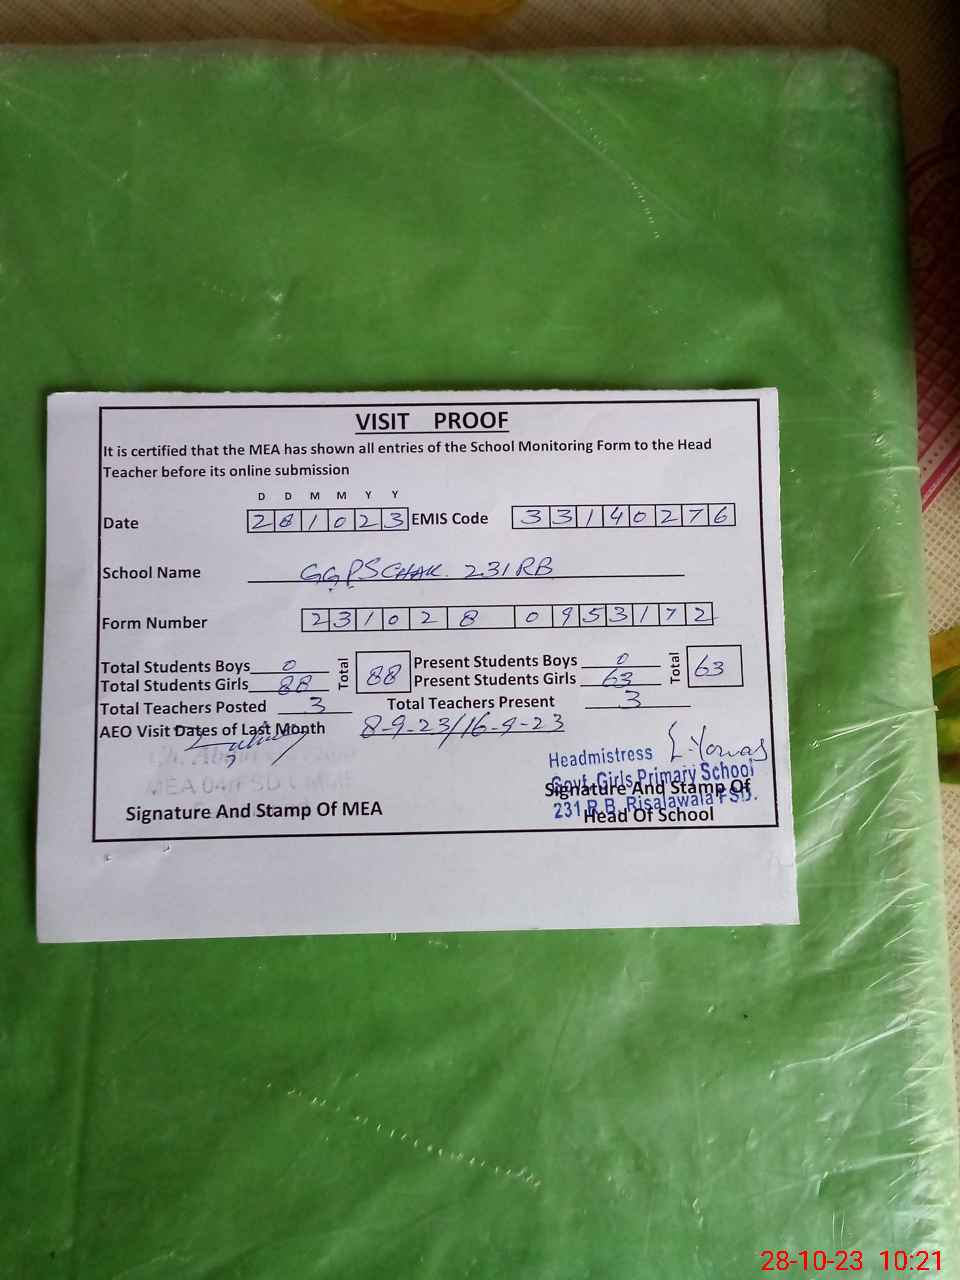 VISIT PROOF
It is certified that the MEA has shown all entries of the School Monitoring Form to the Head
Teacher before its online submission
D D M M Y Y
Date 2 8 1 0 2 3 EMIS Code 3 3 1 4 0 2 7 6
School Name GGPS CHAK. 231 RB
Form Number 2 3 1 0 2 8 0 9 5 3 1 7 2
Total Students Boys 0 Total 88 Present Students Boys 0 Total 63
Total Students Girls 88 Present Students Girls 63
Total Teachers Posted 3 Total Teachers Present 3
AEO Visit Dates of Last Month 8-9-23/16-9-23
Headmistress
Govt. Girls Primary School
231 R.B. Risalawala FSD.
MEA 04
Signature And Stamp Of MEA
Signature And Stamp Of
Head Of School
28-10-23 10:21